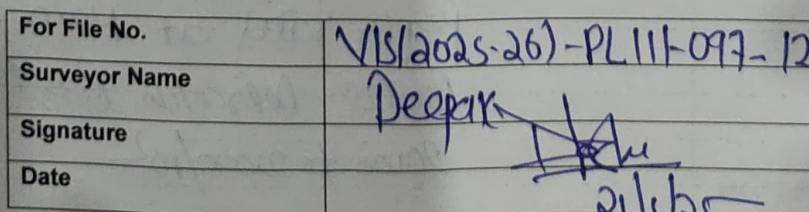 For File No. VIS(2025-26)-PL111-097-12
Surveyor Name Deepak
Signature
Date